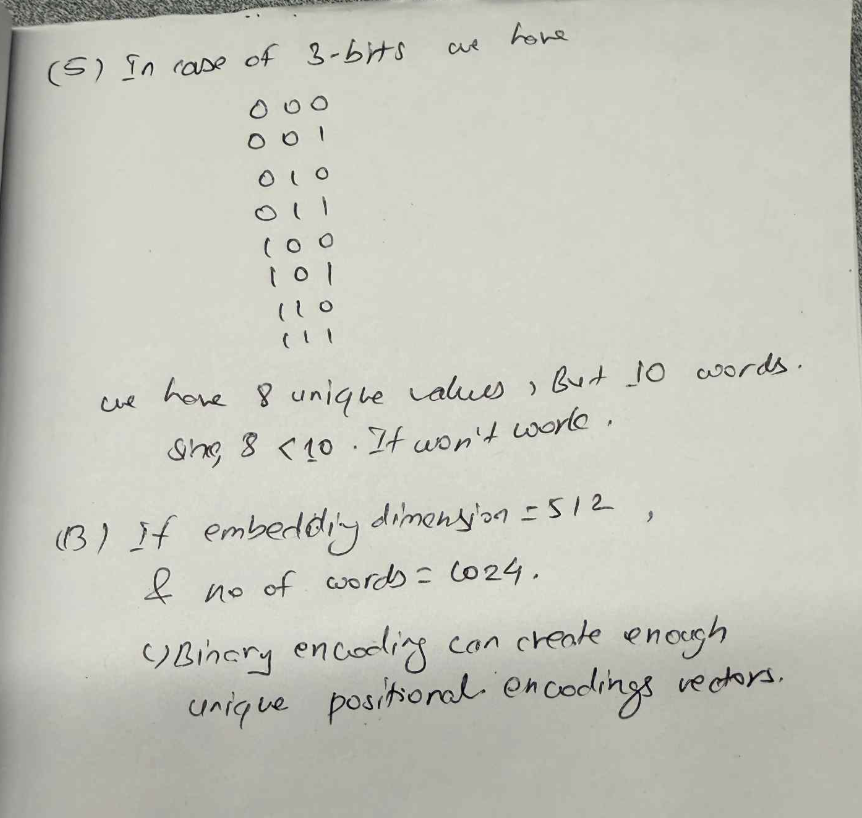 (5) In case of 3-bits we have
0 0 0
0 0 1
0 1 0
0 1 1
1 0 0
1 0 1
1 1 0
1 1 1
we have 8 unique values, But 10 words.
8 < 10. It won't work.
(B) If embedding dimension = 512,
& no of words = 1024.
Binary encoding can create enough
unique positional encodings vectors.